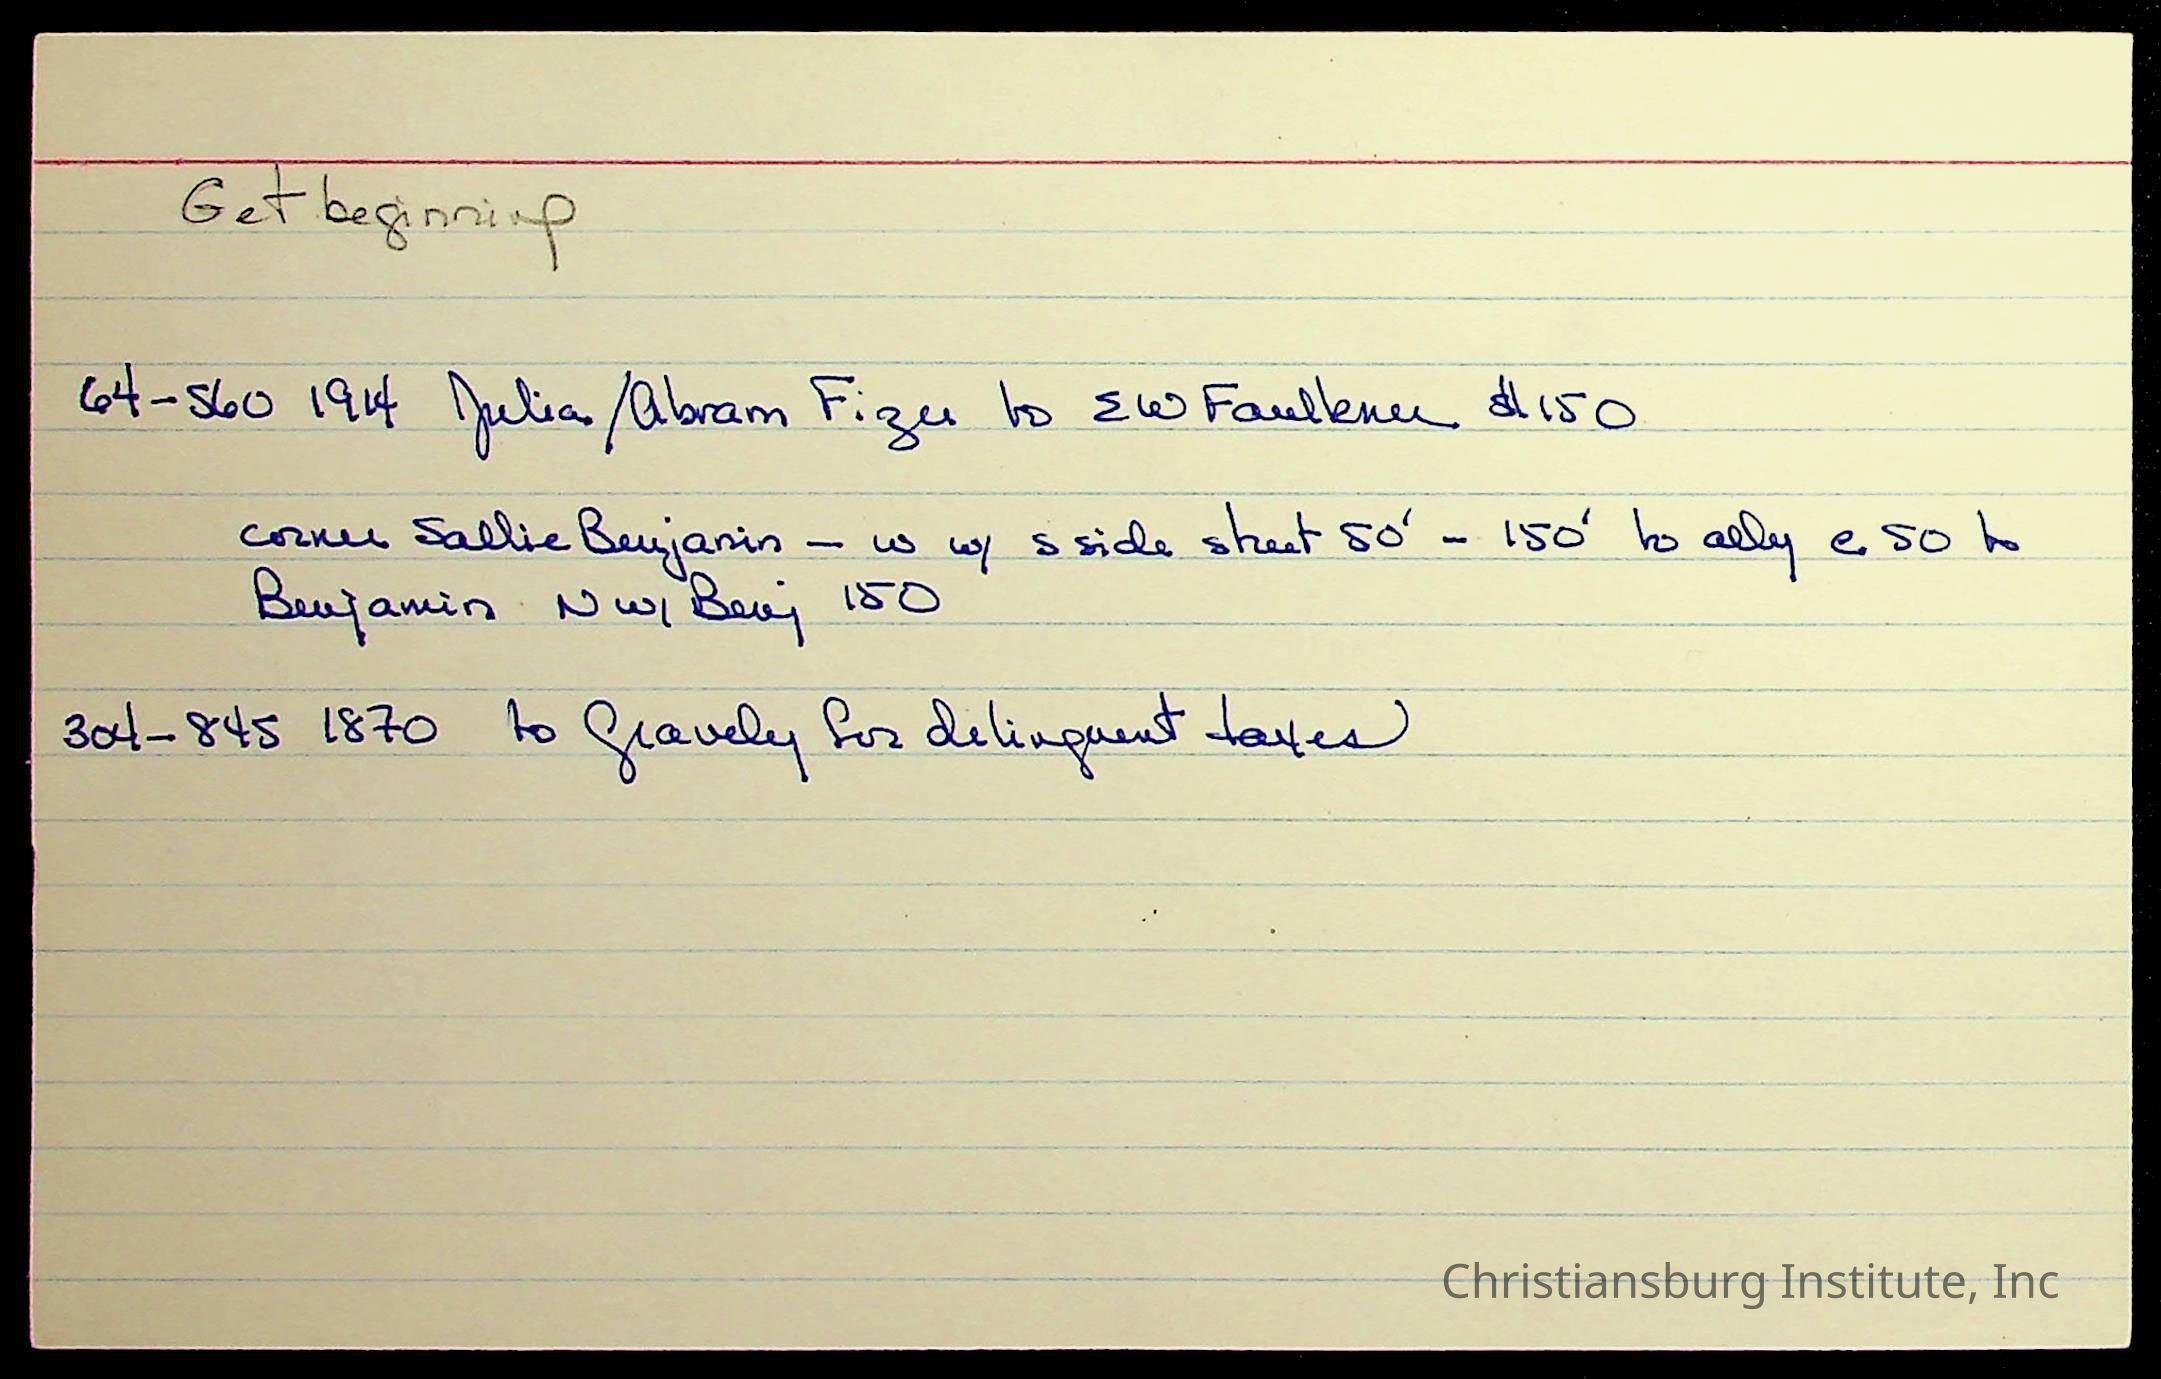 Get beginning
64-560 1914 Julia/Abram Fizer to EW Faulkner $150
corner Sallie Benjamin - w w/ s side street 50' - 150' to alley e. 50 to
Benjamin N w/ Benj 150
304-845 1870 to Gravely for delinquent taxes
Christiansburg Institute, Inc